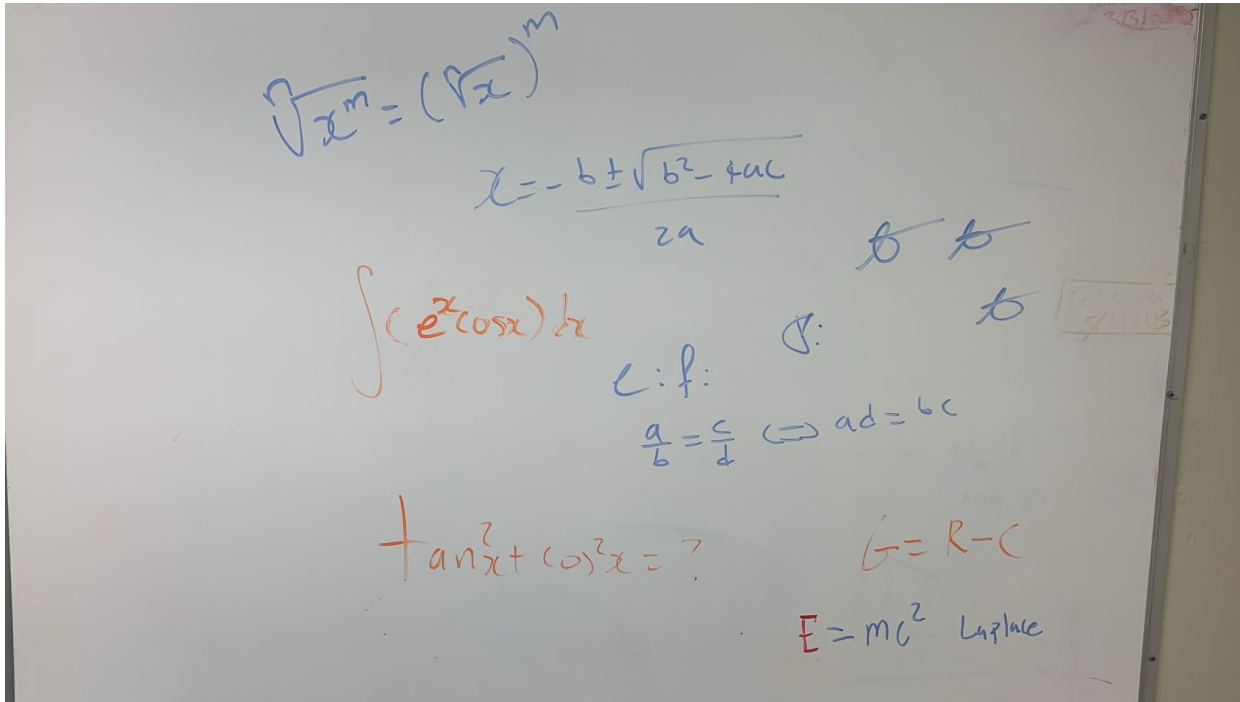 ⁿ√xᵐ = (ⁿ√x)ᵐ
x = -b ± √b² - 4ac
2a
∫(eˣcosx) dx
e: f:
a/b = c/d ⇔ ad = bc
tan²x + cos²x = ?
G = R - C
E = mc² Laplace